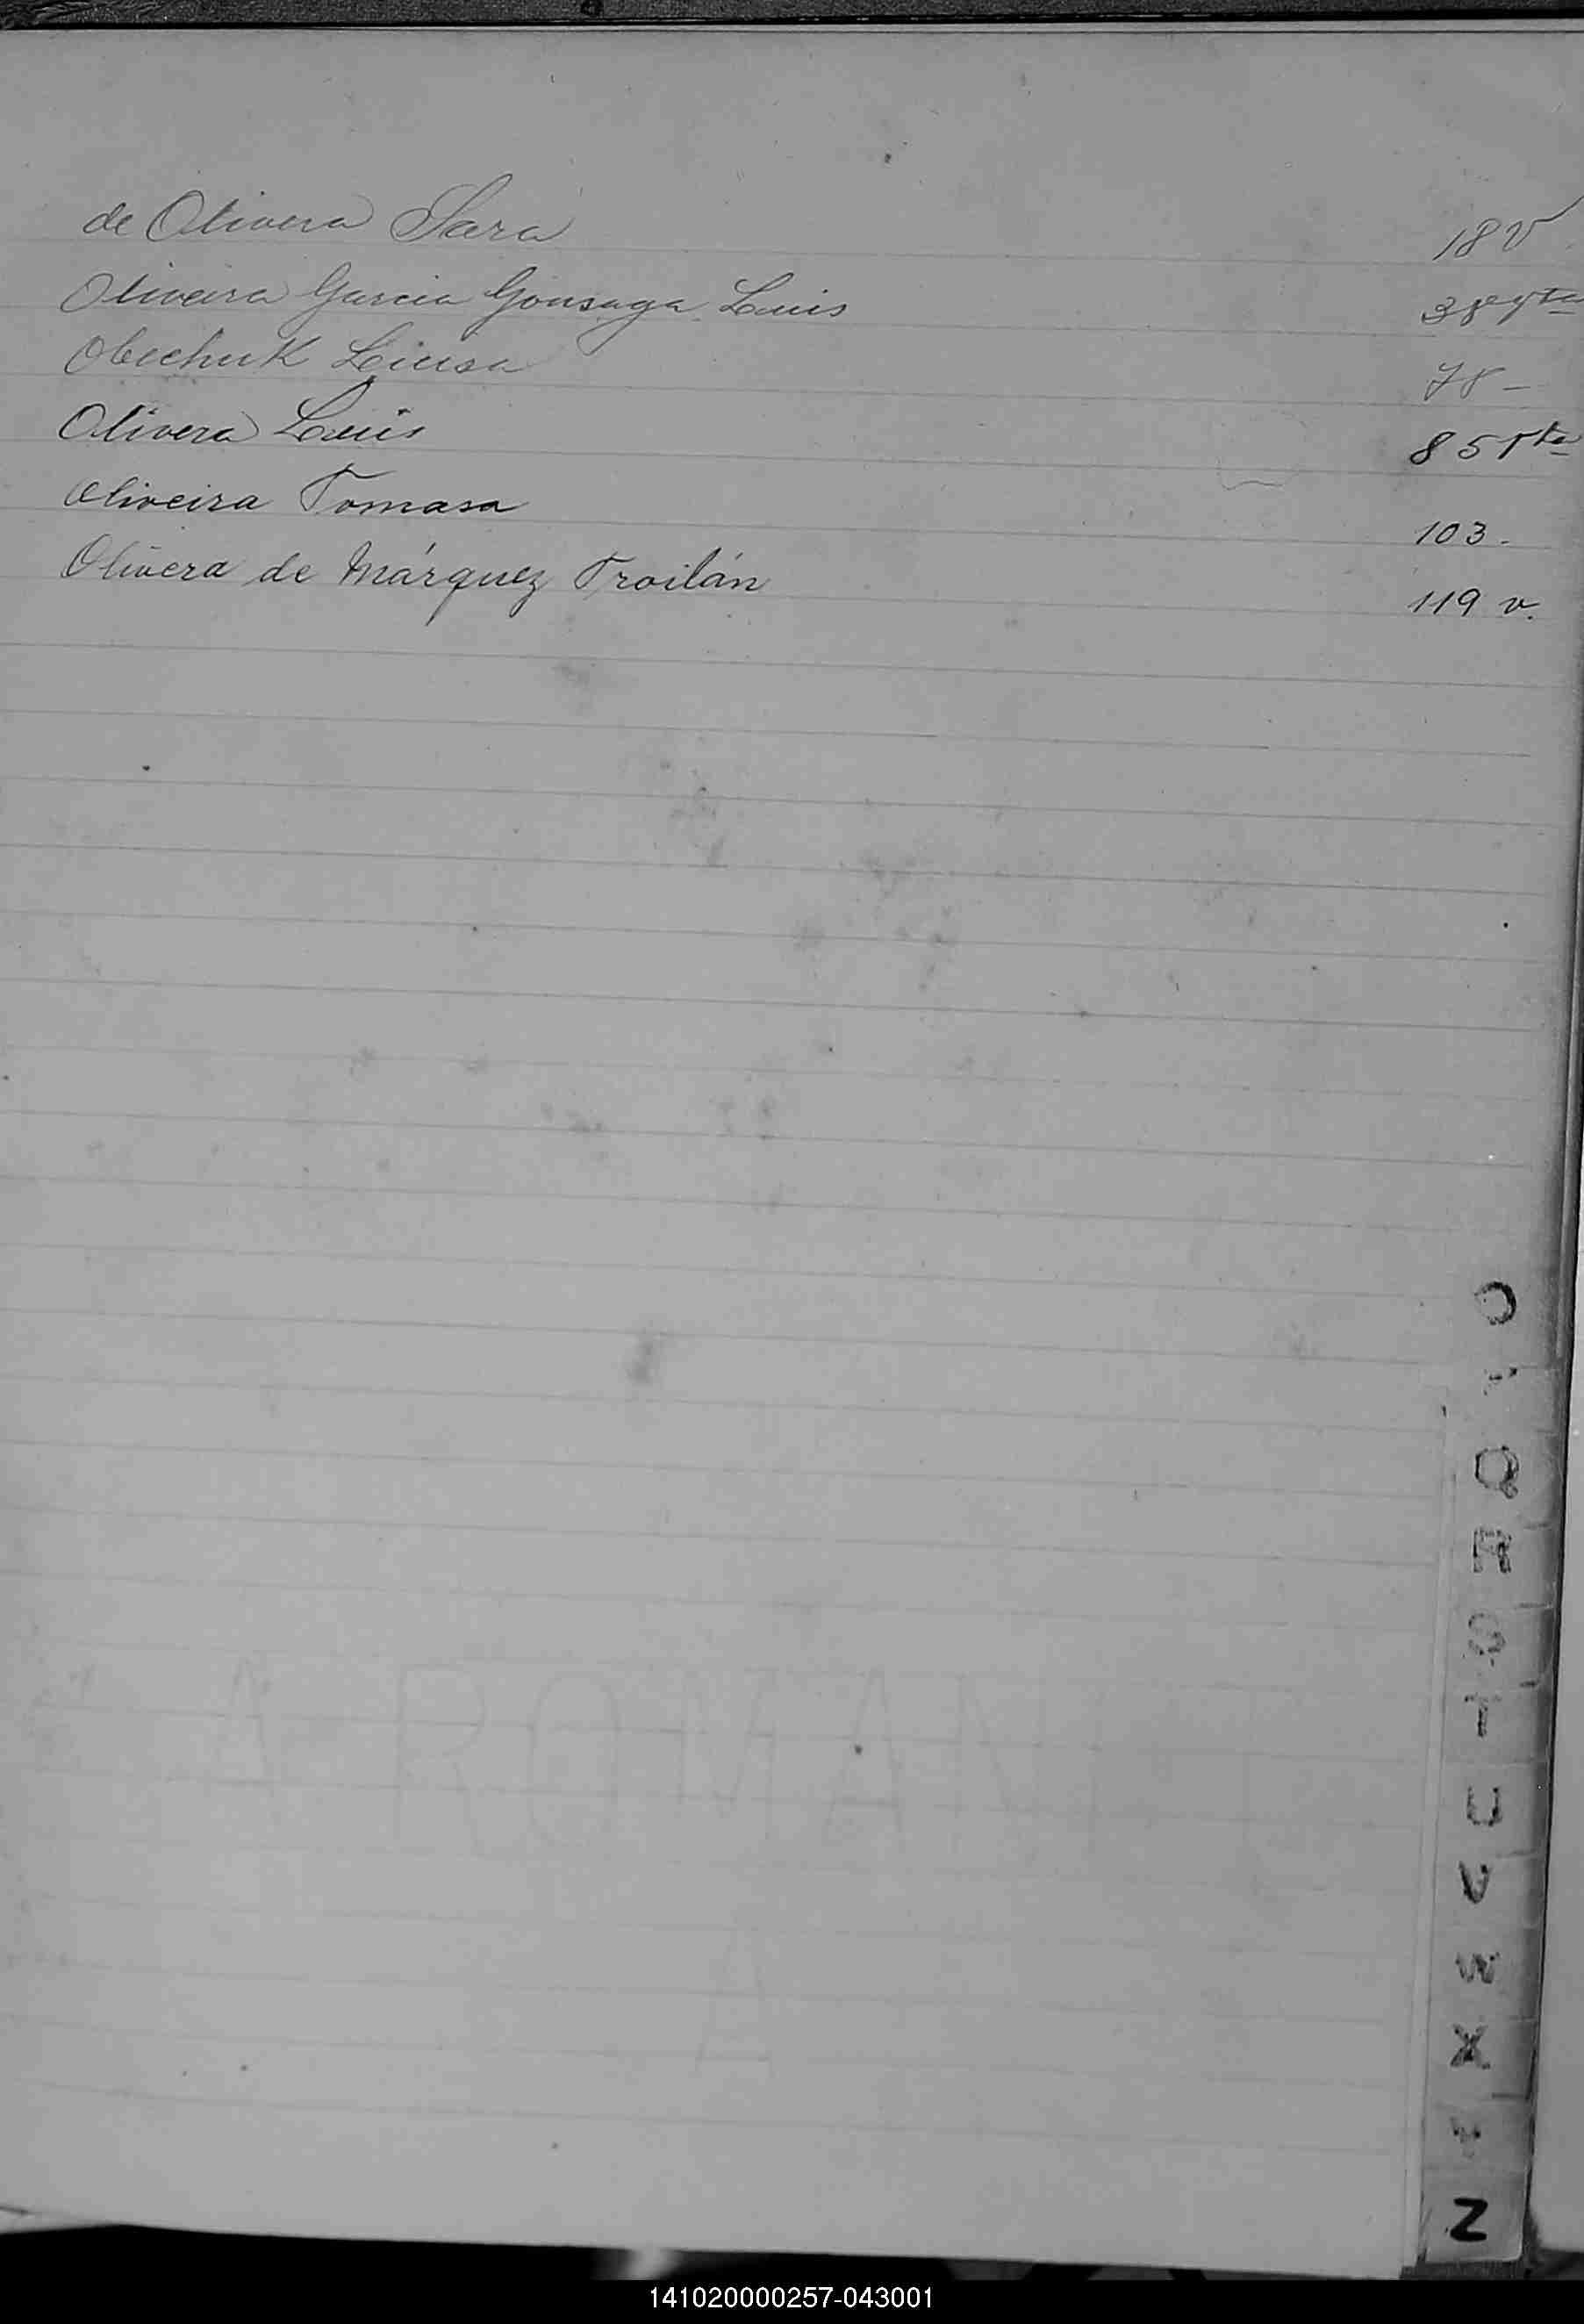 de Olivera Sara 18 v
Oliveira Garcia Gonsaga Luis 38 vta
Obechuk Luisa 78 -
Olivera Luis 85 vta
Oliveira Tomasa 103.
Olivera de Márquez Troilán 119 v.
O
Q
R
S
T
U
V
W
X
Y
Z
A ROMAN
A
141020000257-043001